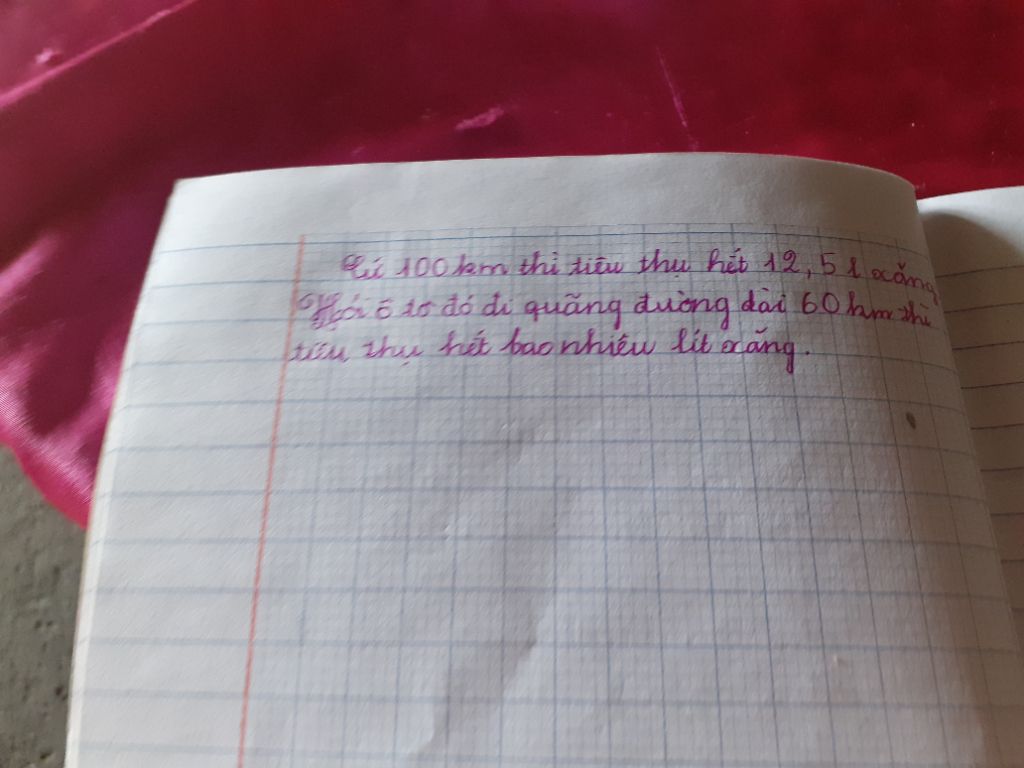 Cứ 100 km thì tiêu thụ hết 12,5 l xăng
Hỏi ô tô đó đi quãng đường dài 60 km thì
tiêu thụ hết bao nhiêu lít xăng.